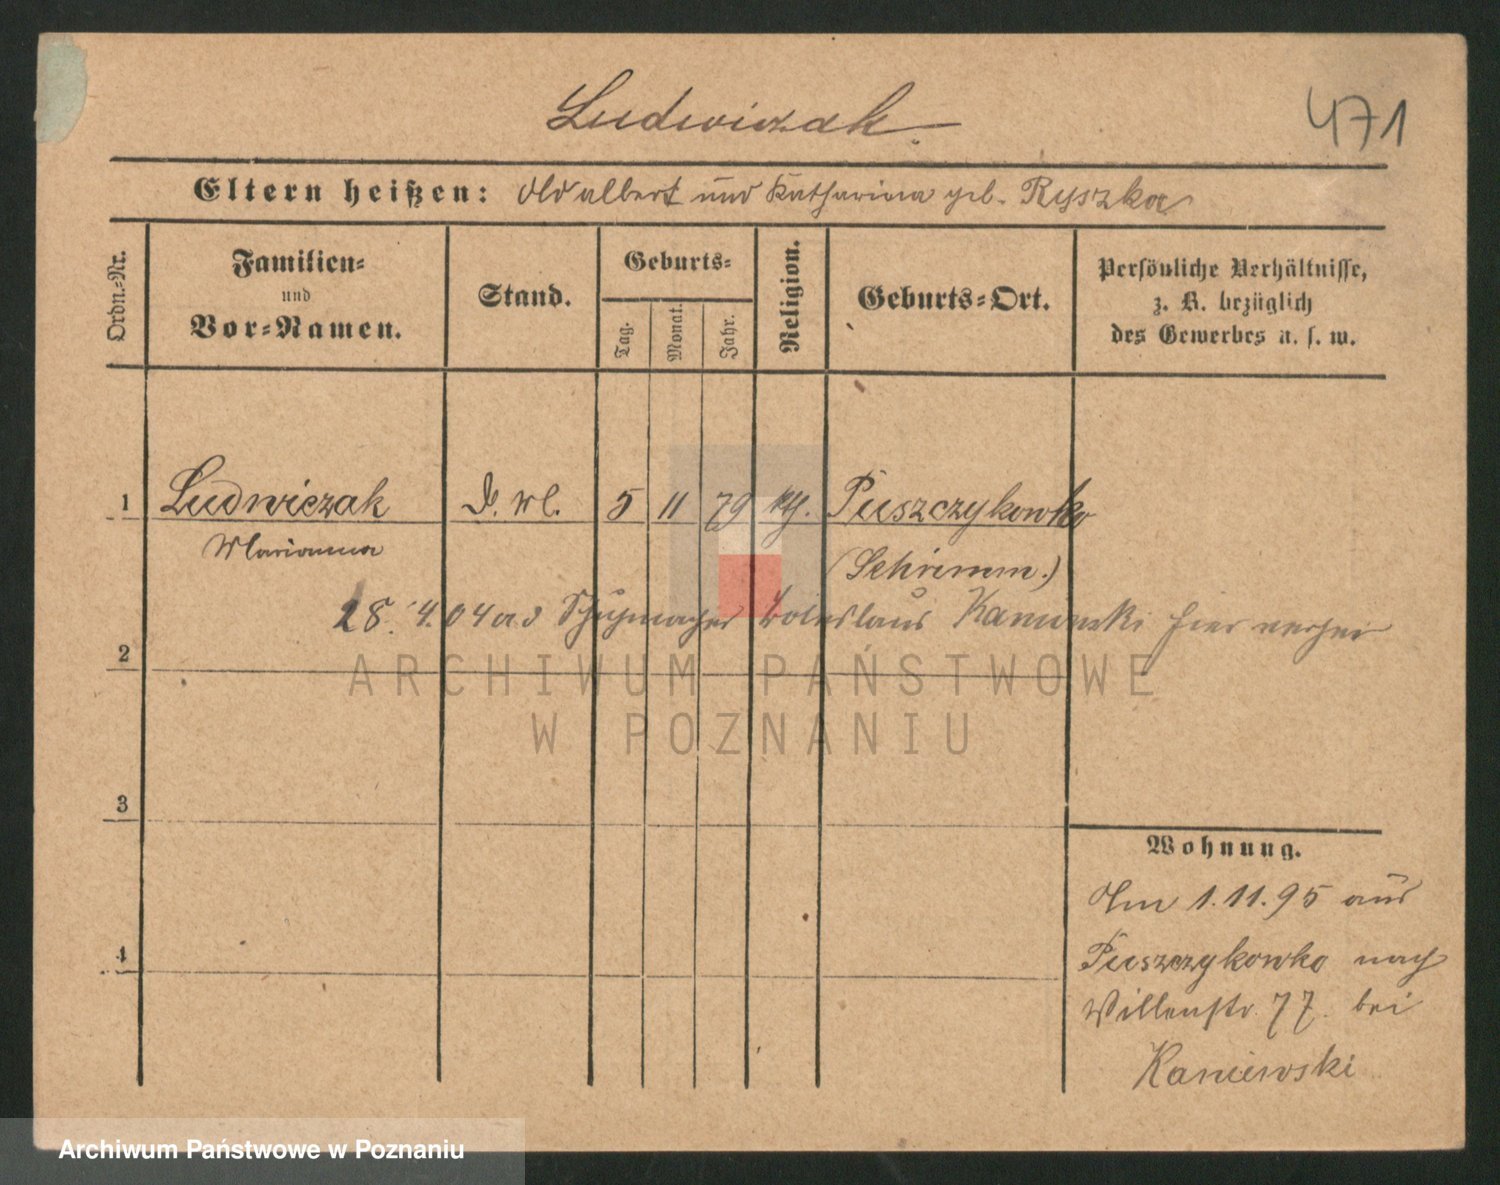 Ludwiczak
471
Eltern heißen: Adalbert und Katharina geb. Ryszka
Ordn.-Nr.
Familien-
und
Vor-Namen.
Stand.
Geburts-
Tag.
Monat.
Jahr.
Religion.
Geburts-Ort.
Persönliche Verhältnisse,
z. B. bezüglich
des Gewerbes u. s. w.
1 Ludwiczak 5 11 79 kth. Puszczykowko
Marianna
(Schrimm.)
28. 4. 04 a. d Schuhmacher Boleslaus Kaniewski hier verhei
2
3
4
Wohnung.
Am 1.11.95 aus
Puszczykowko nach
77. bei
Kaniewski
ARCHIWUM PAŃSTWOWE
W POZNANIU
Archiwum Państwowe w Poznaniu